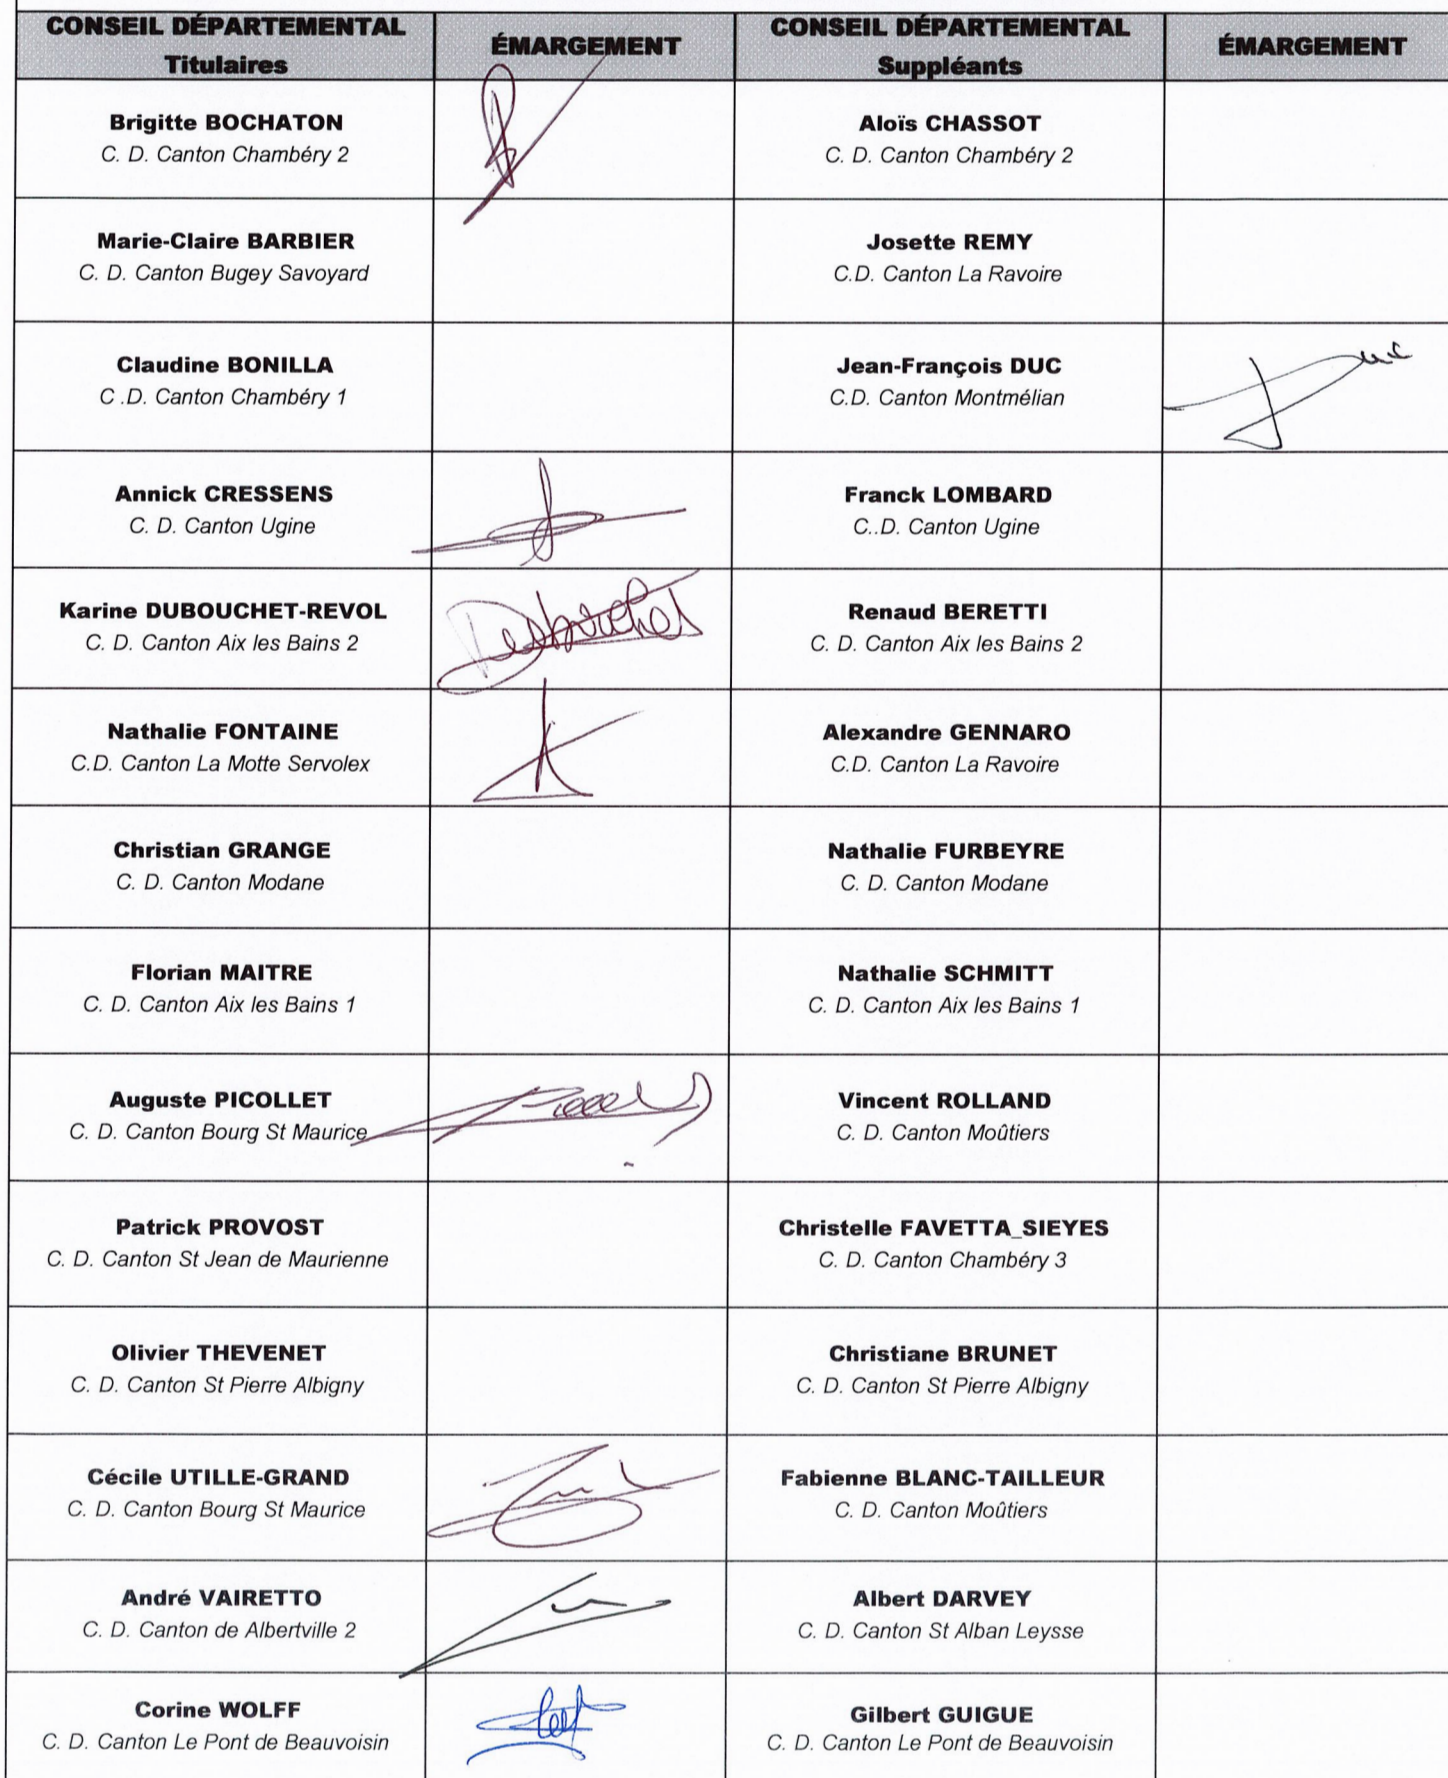 CONSEIL DÉPARTEMENTAL
Titulaires
ÉMARGEMENT
CONSEIL DÉPARTEMENTAL
Suppléants
ÉMARGEMENT
Brigitte BOCHATON
C. D. Canton Chambéry 2
Aloïs CHASSOT
C. D. Canton Chambéry 2
Marie-Claire BARBIER
C. D. Canton Bugey Savoyard
Josette REMY
C.D. Canton La Ravoire
Claudine BONILLA
C .D. Canton Chambéry 1
Jean-François DUC
C.D. Canton Montmélian
Duc
Annick CRESSENS
C. D. Canton Ugine
Franck LOMBARD
C..D. Canton Ugine
Karine DUBOUCHET-REVOL
C. D. Canton Aix les Bains 2
Renaud BERETTI
C. D. Canton Aix les Bains 2
Nathalie FONTAINE
C.D. Canton La Motte Servolex
Alexandre GENNARO
C.D. Canton La Ravoire
Christian GRANGE
C. D. Canton Modane
Nathalie FURBEYRE
C. D. Canton Modane
Florian MAITRE
C. D. Canton Aix les Bains 1
Nathalie SCHMITT
C. D. Canton Aix les Bains 1
Auguste PICOLLET
C. D. Canton Bourg St Maurice
Vincent ROLLAND
C. D. Canton Moûtiers
Patrick PROVOST
C. D. Canton St Jean de Maurienne
Christelle FAVETTA_SIEYES
C. D. Canton Chambéry 3
Olivier THEVENET
C. D. Canton St Pierre Albigny
Christiane BRUNET
C. D. Canton St Pierre Albigny
Cécile UTILLE-GRAND
C. D. Canton Bourg St Maurice
Fabienne BLANC-TAILLEUR
C. D. Canton Moûtiers
André VAIRETTO
C. D. Canton de Albertville 2
Albert DARVEY
C. D. Canton St Alban Leysse
Corine WOLFF
C. D. Canton Le Pont de Beauvoisin
Gilbert GUIGUE
C. D. Canton Le Pont de Beauvoisin